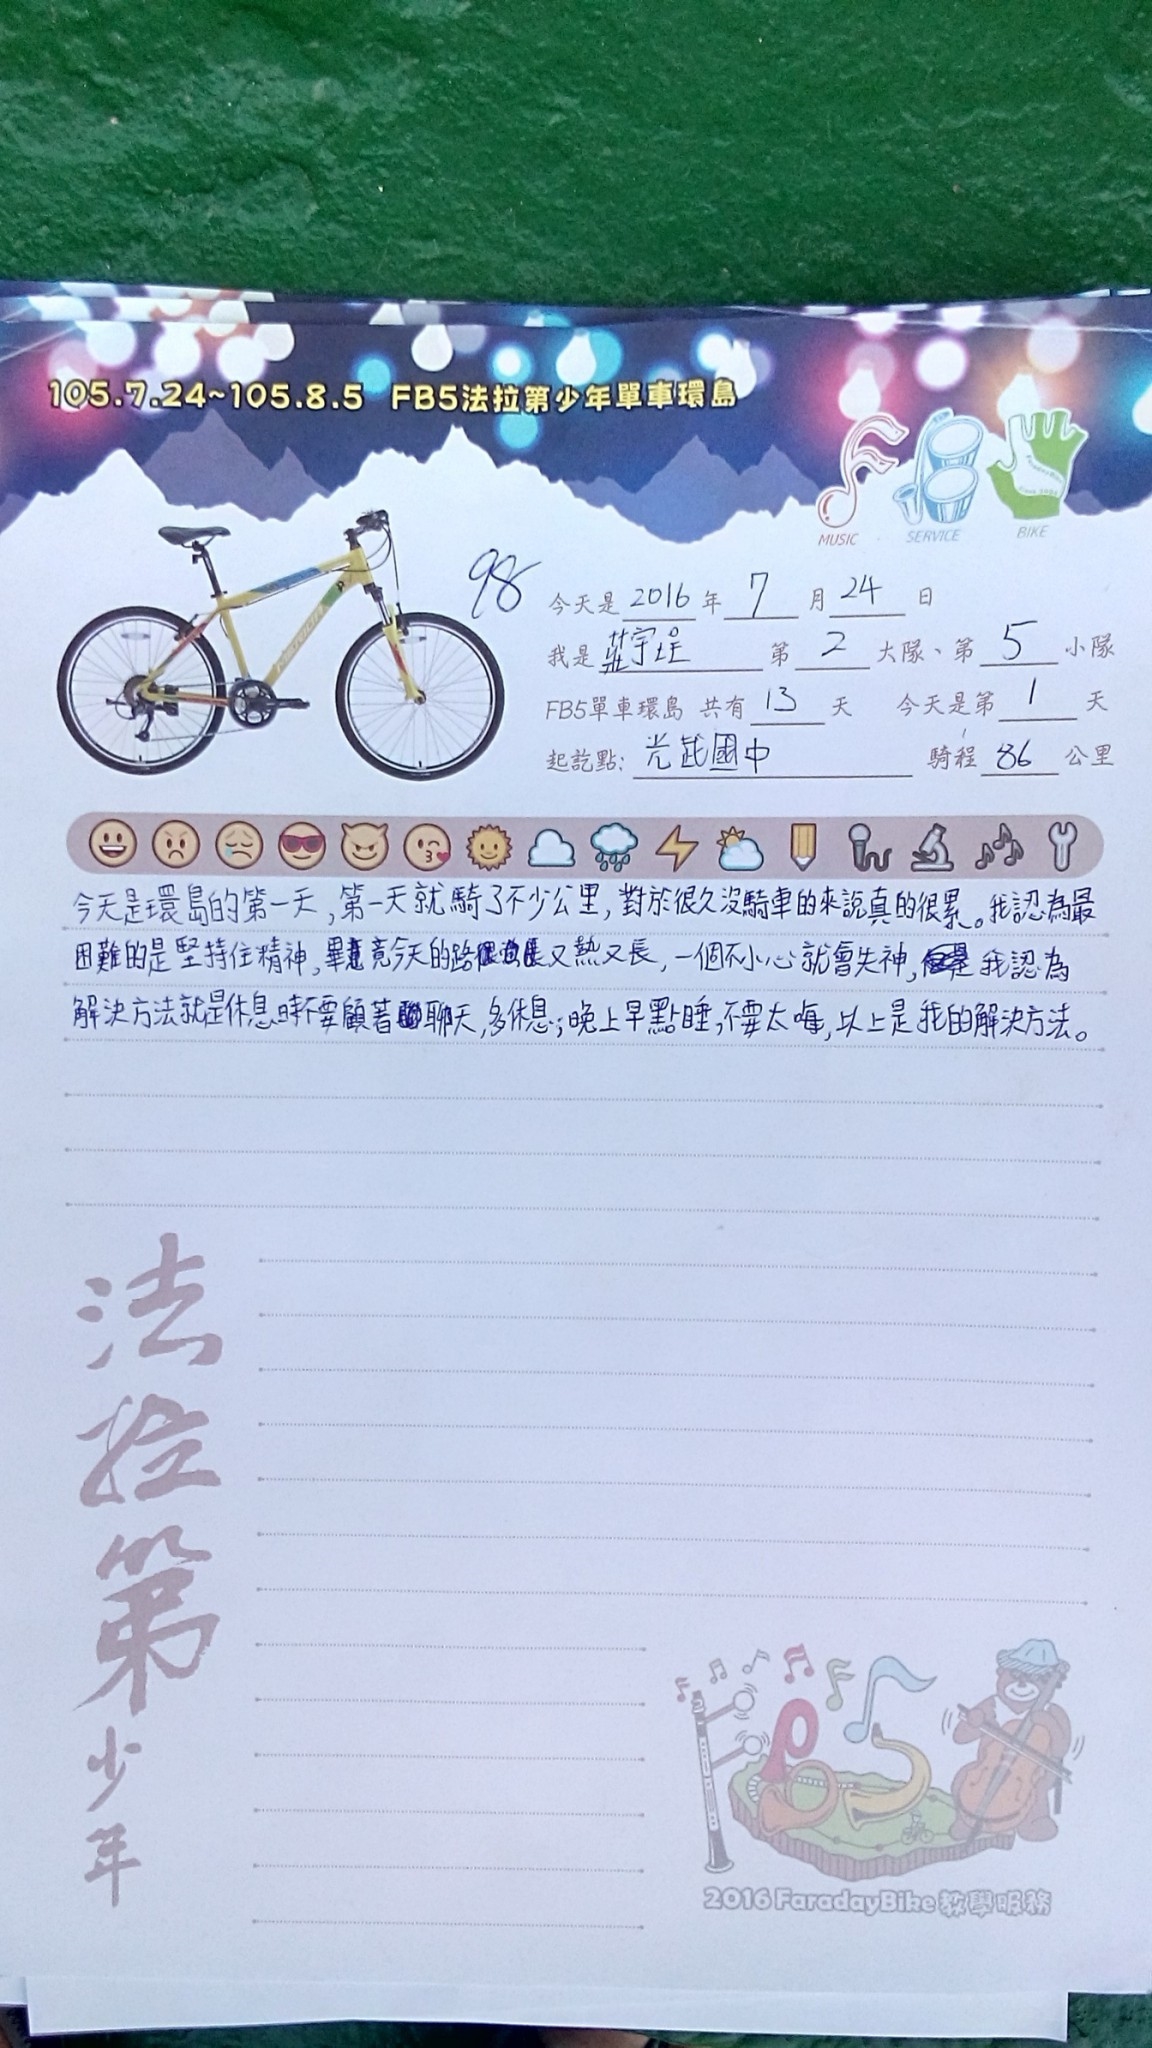 105.7.24~105.8.5 FB5法拉第少年單車環島
MUSIC · SERVICE BIKE
98
今天是 2016 年 7 月 24 日
我是 莊宇珵 第 2 大隊、第 5 小隊
FB5單車環島 共有 13 天 今天是第 1 天
起訖點: 光武國中 騎程 86 公里
今天是環島的第一天,第一天就騎了不少公里,對於很久沒騎車的來說真的很累。我認為最
困難的是堅持住精神,畢竟今天的路又熱又長,一個不小心就會失神,我認為
解決方法就是休息時不要顧著聊天,多休息;晚上早點睡,不要太晦,以上是我的解決方法。
法拉第少年
2016 FaradayBike 教學服務